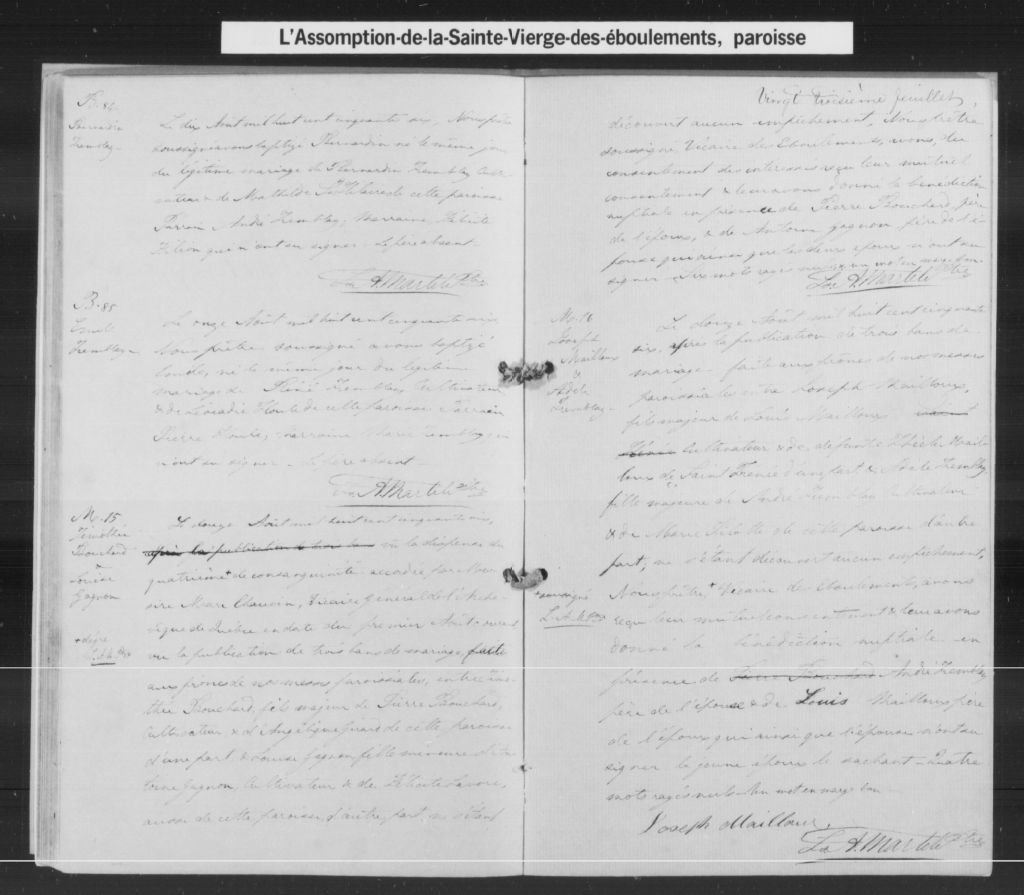 L'Assomption-de-la-Sainte-Vierge-des-éboulements, paroisse
B. 84
Bernardin
Tremblay
Le dix Août mil huit cent cinquante six, Nous prêtre
soussigné avons baptizé Bernardin né le même jour
du légitime mariage de Bernardin Tremblay Culti-
vateur & de Mathilde St Hilaire de cette paroisse
Parrain André Tremblay, Marraine Félicité
qui n'ont su signer. Le père absent.
A. Martel Ptre
B. 85
Tremblay
Le onze Août mil huit cent cinquante six,
Nous prêtre soussigné avons baptizé
né le même jour du légitime
mariage de Tremblay, Cultivateur
& de Léocadie de cette paroisse Parrain
Pierre Marraine Marie Tremblay qui
n'ont su signer. Le père absent
A. Martel Ptre
M. 15
Timothée
Bouchard
&
Louise
Gagnon
Le douze Août mil huit cent cinquante six,
après la publication de trois bans vu la dispense du
quatrième + de consanguinité accordée par Mes-
sire Marc Chauvin, Vicaire Général de l'Arche-
vêque de Québec en date du premier Août courant
+ degré
vu la publication de trois bans de mariage, faite
aux prônes de nos messes paroissiales, entre Timo-
thée Bouchard, fils majeur de Pierre Bouchard,
Cultivateur & d'Angélique Girard de cette paroisse
d'une part & Louise Gagnon fille mineure d'An-
toine Gagnon, Cultivateur & de Félicité Lavoie,
aussi de cette paroisse d'autre part, ne s'étant
Vingt troisième feuillet.
découvert aucun empêchement, Nous prêtre
soussigné Vicaire des Eboulements, avons, du
consentement des intéressés reçu leur mutuel
consentement & leur avons donné la bénédiction
nuptiale en présence de Pierre Bouchard, père
de l'époux, & de Antoine Gagnon père de l'é-
pouse qui ainsi que les deux époux n'ont su
signer. Six mots rayés nuls & un mot en marge bon.
A. Martel Ptre
M. 16
Joseph
Mailloux
&
Adèle
Tremblay
Le douze Août mil huit cent cinquante
six, après la publication de trois bans de
mariage faite aux prônes de nos messes
paroissiales entre Joseph Mailloux,
fils majeur de Louis Mailloux
Cultivateur & de défunte Mail-
loux de Saint Irénée d'une part & Adèle Tremblay
fille majeure de André Tremblay Cultivateur
& de Marie de cette paroisse d'autre
part, ne s'étant découvert aucun empêchement,
Nous prêtre + Vicaire des Eboulements, avons
+ soussigné
L. A. M. Ptre
reçu leur mutuel consentement & leur avons
donné la bénédiction nuptiale en
présence de Pierre Bouchard André Tremblay
père de l'épouse & de Louis Mailloux père
de l'époux qui ainsi que l'épouse n'ont su
signer le jeune époux le sachant. Quatre
mots rayés nuls. Un mot en marge bon
Joseph Mailloux.
A. Martel Ptre